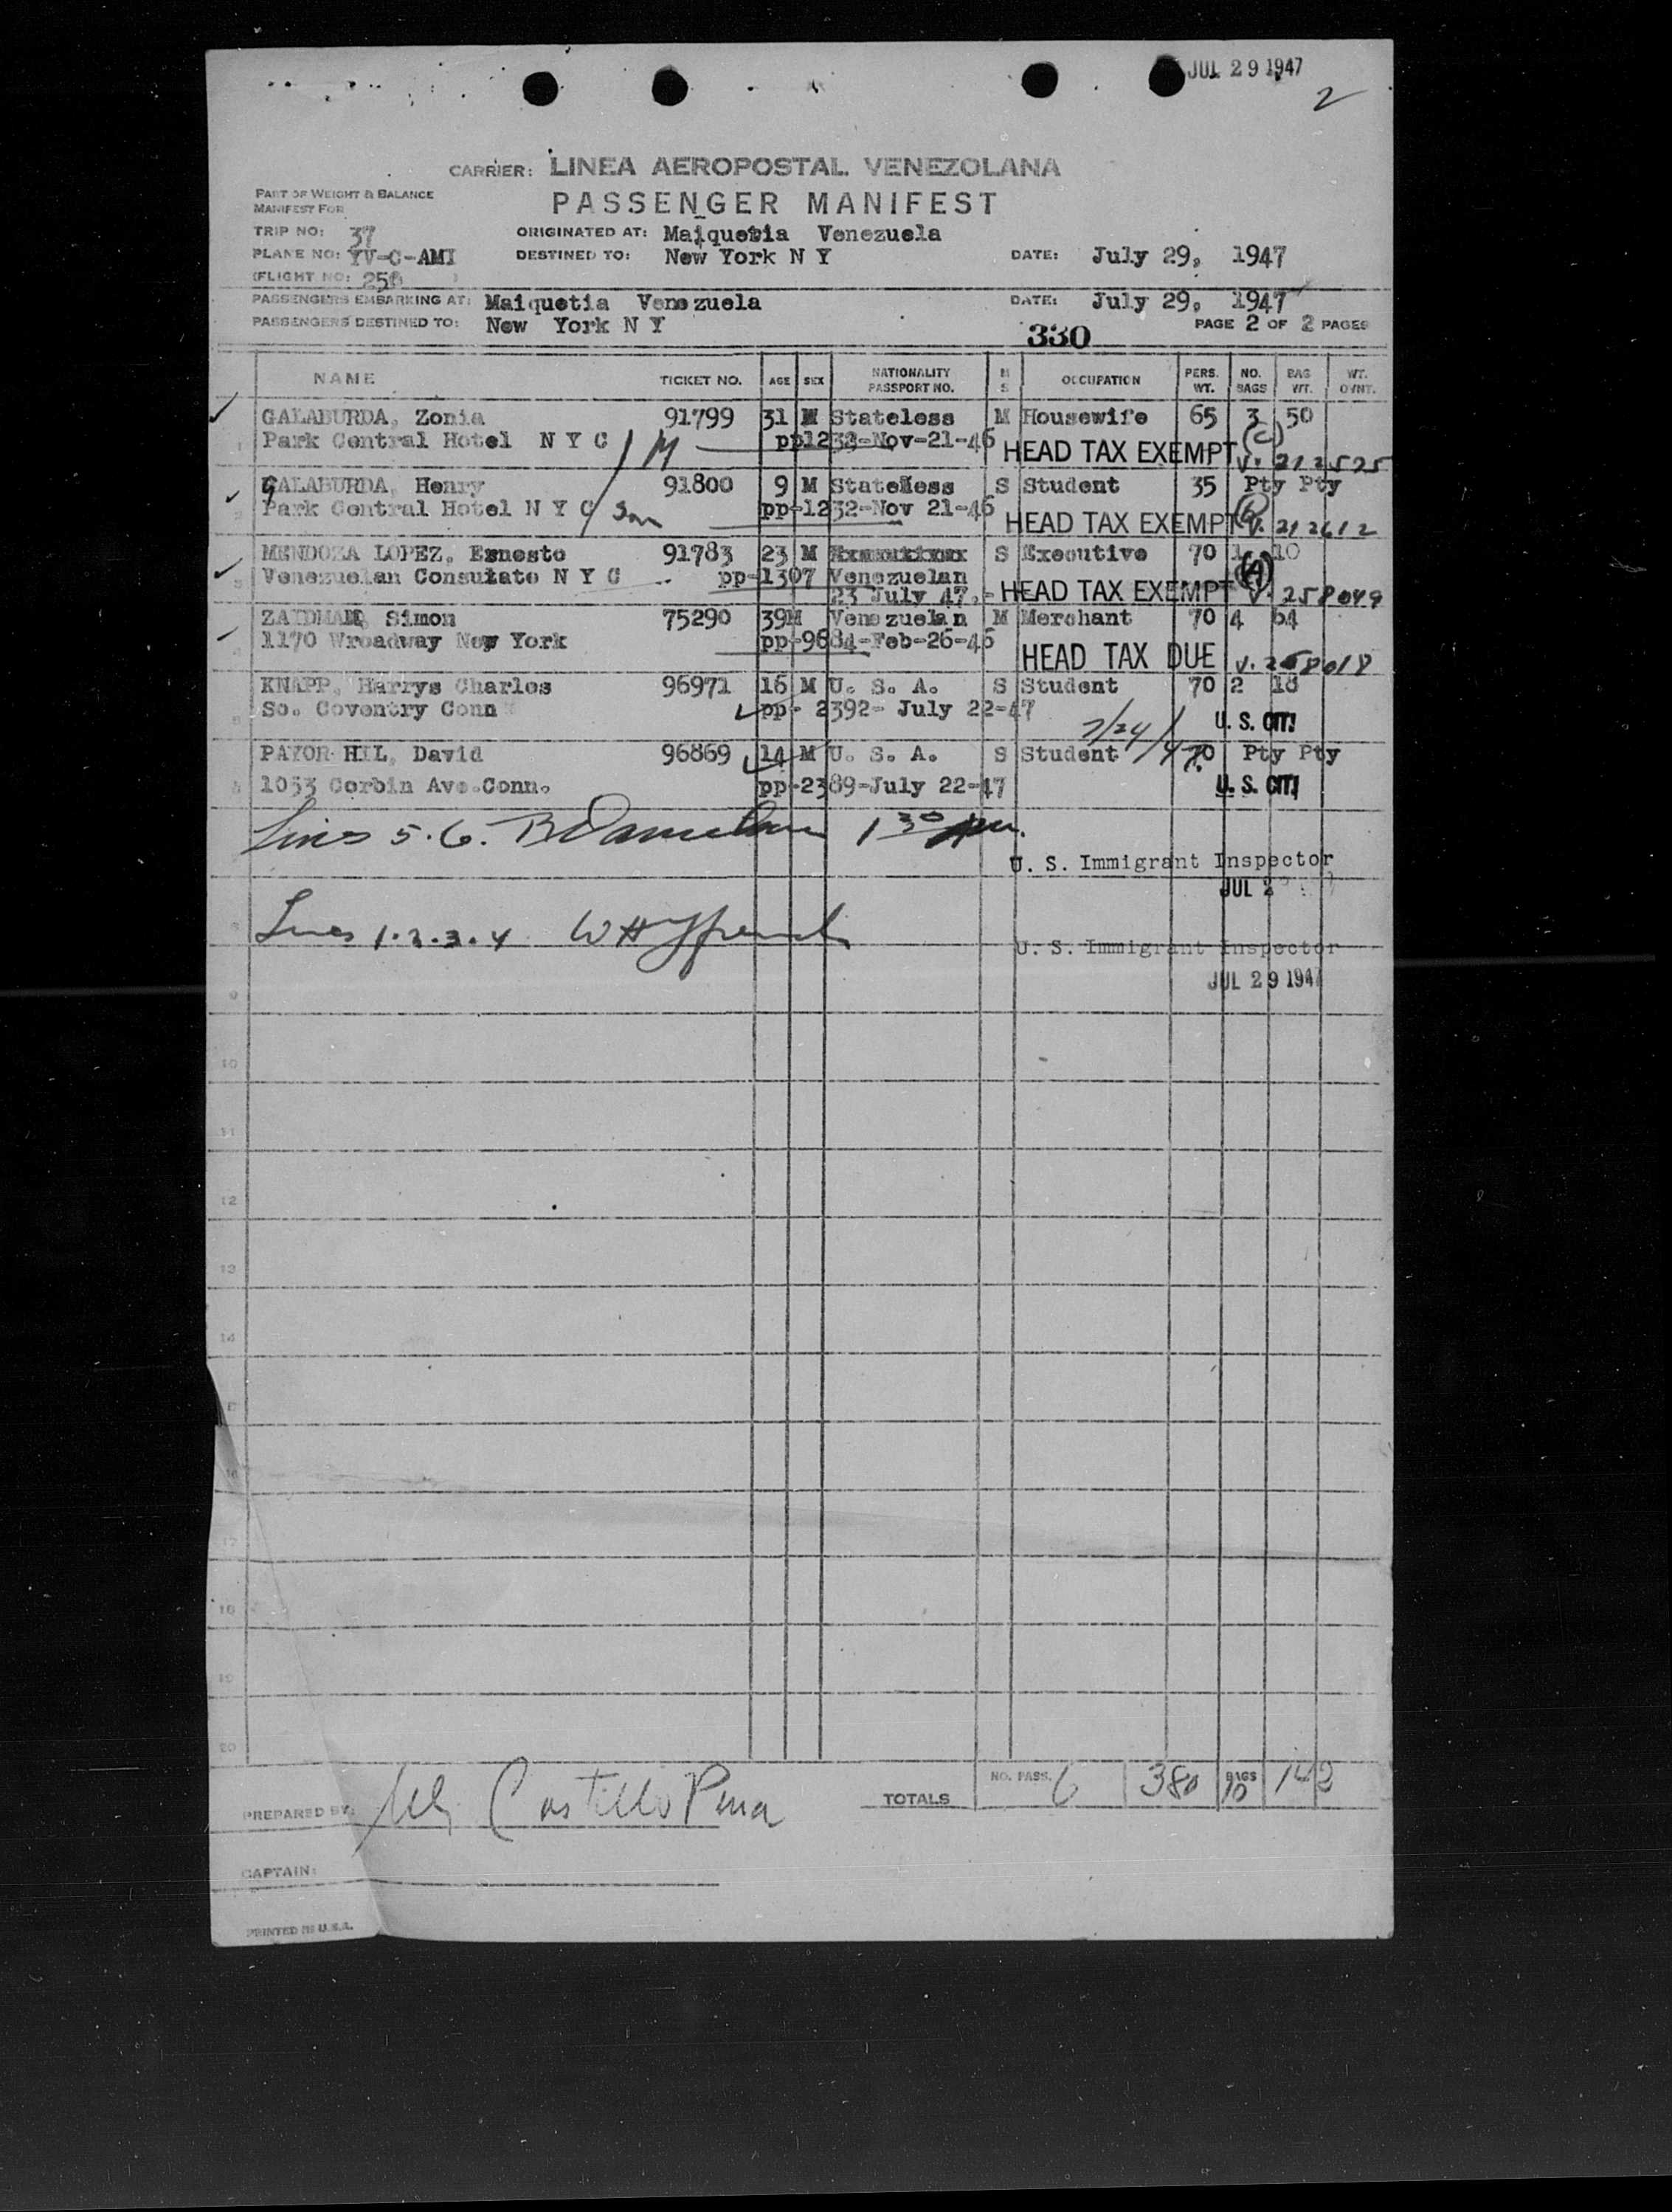 JUL 29 1947
2
CARRIER: LINEA AEROPOSTAL VENEZOLANA
PART OF WEIGHT & BALANCE
MANIFEST FOR
PASSENGER MANIFEST
TRIP NO: 37 ORIGINATED AT: Maiquetia Venezuela
PLANE NO: YV-C-AMI DESTINED TO: New York N Y DATE: July 29, 1947
(FLIGHT NO: )
PASSENGERS EMBARKING AT: Maiquetia Venezuela DATE: July 29, 1947
PASSENGERS DESTINED TO: New York N Y 330 PAGE 2 OF 2 PAGES
NAME TICKET NO. AGE SEX NATIONALITY PASSPORT NO. M S OCCUPATION PERS. WT. NO. BAGS BAG WT. WT. OVNT.
GALABURDA, Zonia 91799 31 Stateless M Housewife 65 3 50
1 Park Central Hotel N Y C / M pp1232-Nov-21-46 HEAD TAX EXEMPT (C) V. 212525
GALABURDA, Henry 91800 9 M Stateless S Student 35 Pty Pty
2 Park Central Hotel N Y C / Son pp-1232-Nov 21-46 HEAD TAX EXEMPT V. 212612
MENDOZA LOPEZ, Ernesto 91783 23 M S Executive 70 1 10
3 Venezuelan Consulate N Y C pp-1307 Venezuelan
23 July 47.- HEAD TAX EXEMPT V. 258049
ZAIDMAN, Simon 75290 39M Venezuelan M Merchant 70 4 64
4 1170 Wroadway New York pp-9684-Feb-26-46
HEAD TAX DUE V. 258018
KNAPP, Harrys Charles 96971 16 M U. S. A. S Student 70 2 18
5 So. Coventry Conn pp- 2392- July 22-47 7/24/47. U. S. CIT!
PAYOR HIL, David 96869 14 M U. S. A. S Student 70 Pty Pty
6 1053 Corbin Ave.Conn. pp-2389-July 22-47 U. S. CIT!
Lines 5.6. 1 30 pm.
U. S. Immigrant Inspector
JUL 2
8 Lines 1.2.3.4
U. S. Immigrant Inspector
JUL 29 1947
9
10
11
12
13
14
16
17
18
19
20
NO. PASS. 6 380 BAGS 10 142
PREPARED BY: Castillo TOTALS
CAPTAIN:
PRINTED IN U.S.A.